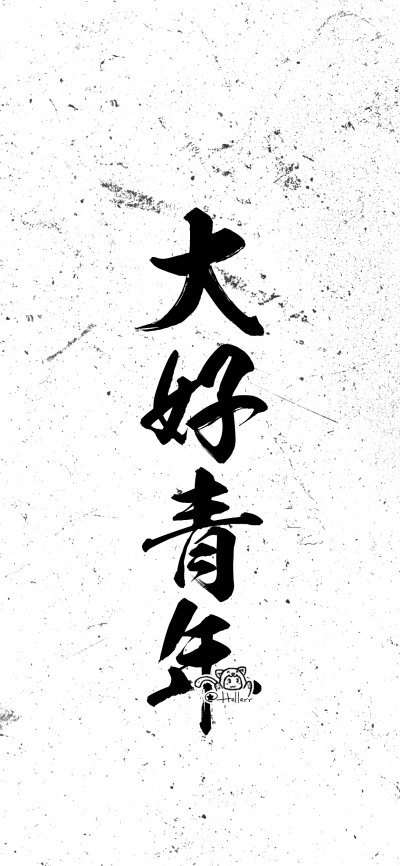 大好青年
Hellerr